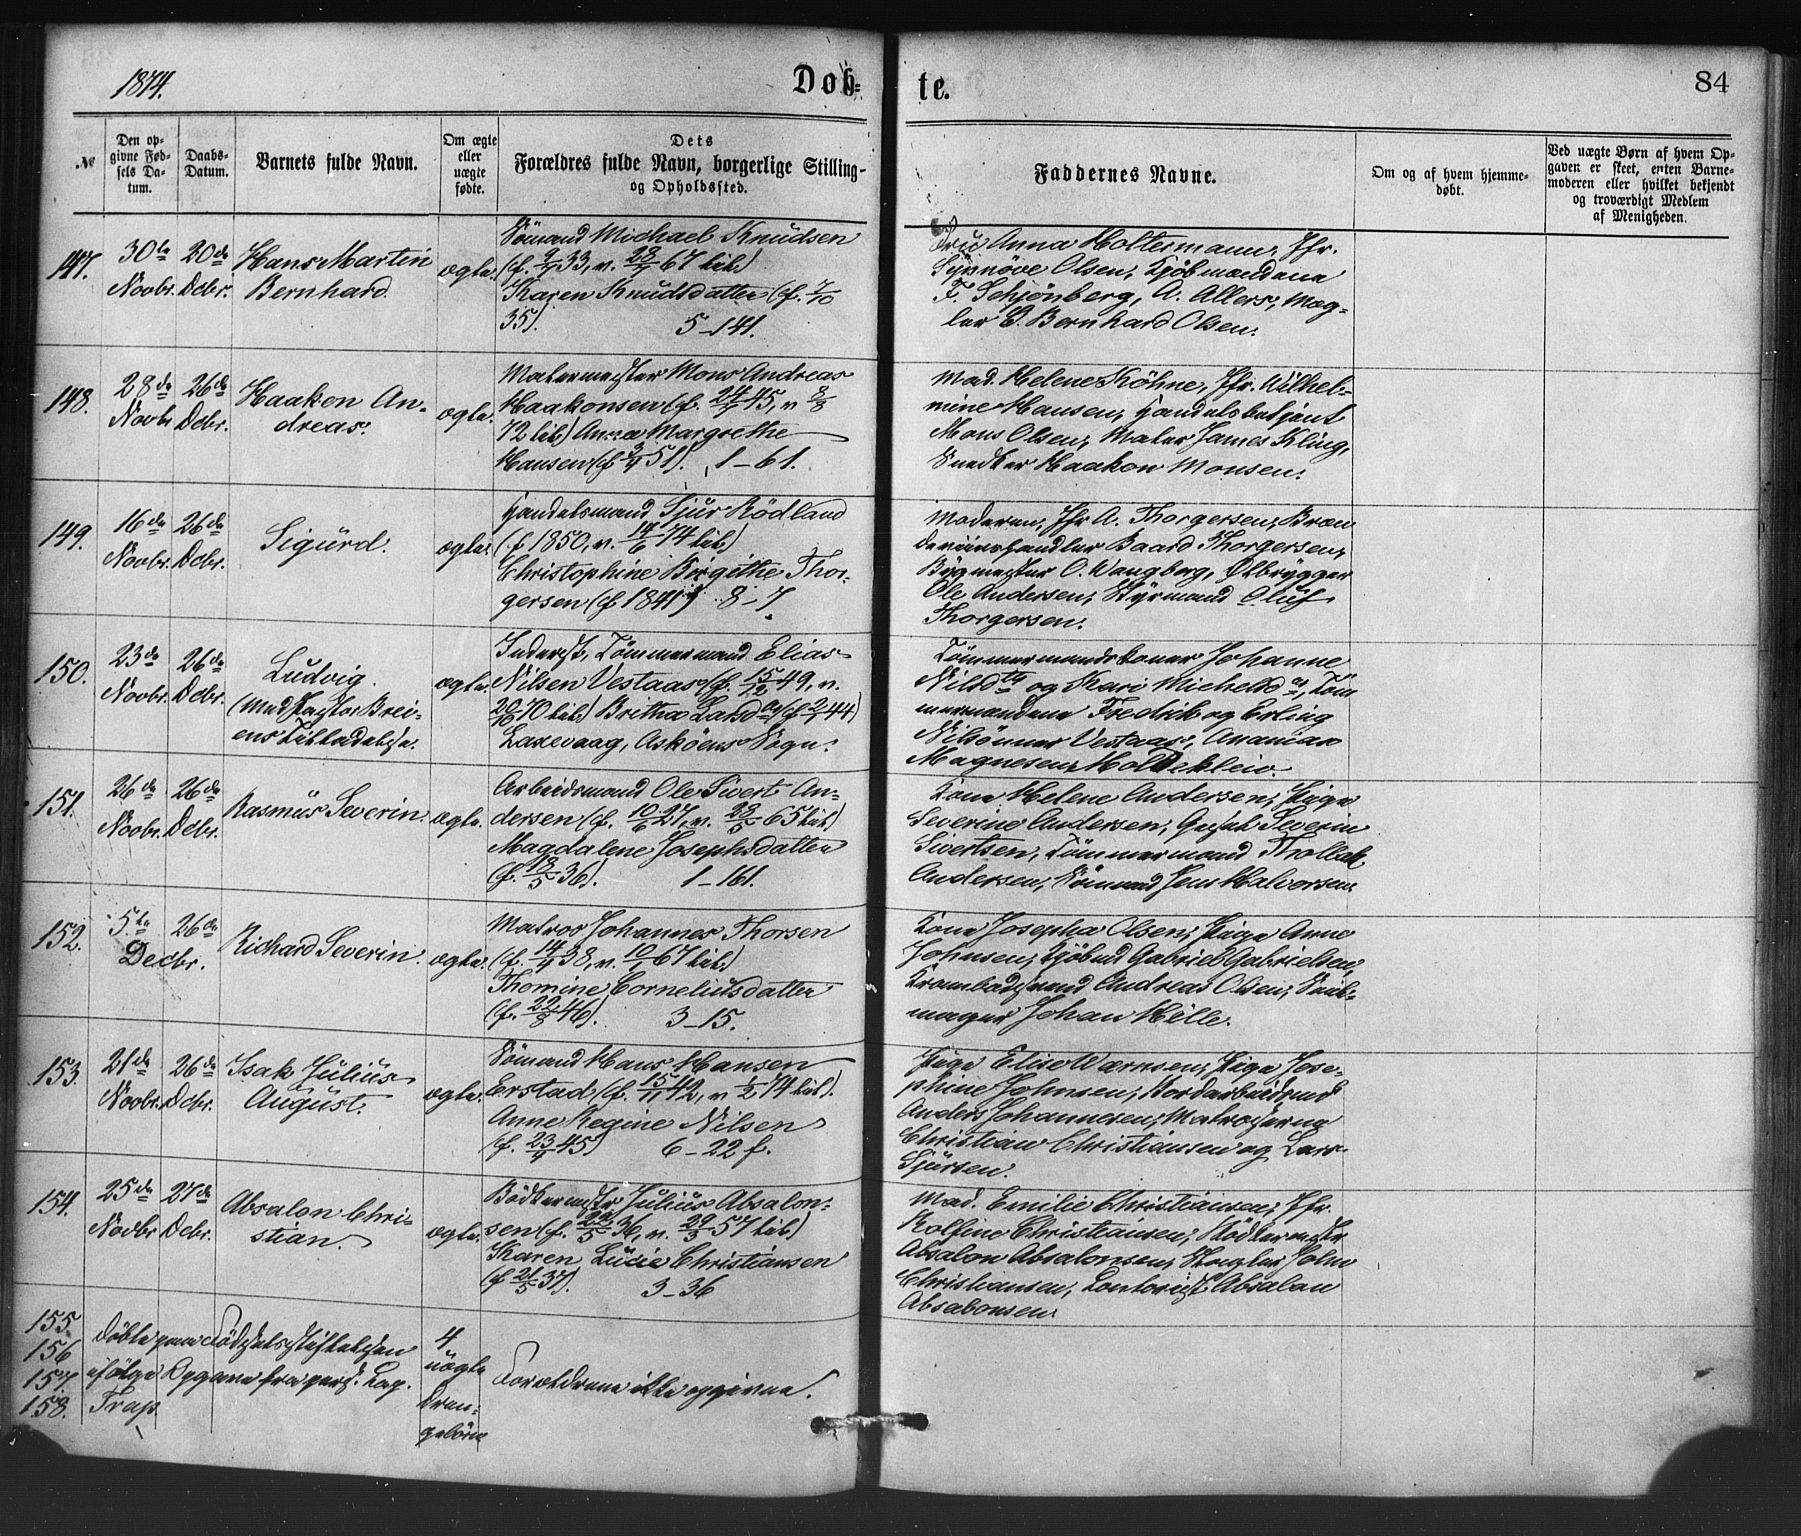 1874.
Døb-
te.
84
No
Den op-
givne Fød-
sels Da-
tum.
Daabs-
Datum.
Barnets fulde Navn.
Om ægte
eller
uægte
fødte.
Dets
Forældres fulde Navn, borgerlige Stilling
og Opholdssted.
Faddernes Navne.
Om og af hvem hjemme-
døbt.
Ved uægte Børn af hvem Op-
gaven er skeet, enten Barne-
moderen eller hvilket bekjendt
og troværdigt Medlem
af Menigheden.
147.
30te
Novbr.
20de
Dcbr.
Hans Martin
Bernhard
ægte.
Sömand Michael Knudsen
(f. 9/7 33, v. 28/7 67 hib.)
Karen Knudsdatter (f. 7/10
35). 5-141.
Fru Anna Holtermann, Jfr.
Synnöve Olsen, Kjöbmændene
F. Schjönberg, A. Allers, Mæg-
ler C. Bernhard Olsen.
148.
28de
Novbr.
26de
Dcbr.
Haakon An-
dreas.
ægte.
Malermester Mons Andreas
Haakonsen (f. 24/7 45, v. 8/8
72 hib.) Anna Margrethe
Hansen (f. 3/4 51). 1-61.
Mad. Helene Köhne, Jfr. Wilhel-
mine Hansen, Handelsbetjent
Mons Olsen, Maler James Kling,
Snedker Haakon Monsen.
149.
16de
Novbr.
26de
Dcbr.
Sigurd.
ægte.
Handelsmand Sjur Rödland
(f. 1850, v. 14/6 74 hib.)
Christophine Birgithe Thor-
gersen (f. 1841) 8-7
Moderen, Jfr A. Thorgersen, Bræn
devinshandler Baard Thorgersen,
Bÿgmester O. Wangberg, Ølbrÿgger
Ole Andersen, Stÿrmand Oluf
Thorgersen.
150.
23de
Novbr.
26de
Dcbr.
Ludvig.
(Med Pastor Brei-
ens Tilladelse.
ægte.
Inderst, Tömmermand Elias
Nilsen Vestaas (f. 15/12 49, v.
20/10 70 hib.) Britha Larsdtr (f. 2/1 44)
Laxevaag, Asköens Sogn.
Tömmermandskoner Johanne
Nilsdtr og Kari Michelsdtr, Töm
mermændene Fredrik og Erling
Nilsönner Vestaas, Ananias
Magnesen Moldekleiv.
151.
26de
Novbr.
26de
Dcbr.
Rasmus Severin.
ægte.
Arbeidsmand Ole Sivert An-
dersen (f. 10/6 27, v. 28/5 65 hib.)
Magdalene Josephsdatter
(f. 18/5 36). 1-161.
Kone Helene Andersen, Pige
Severine Andersen, Gesel Severin
Sivertsen, Tömmermand Thollak
Andersen, Sömand Jens Halvorsen.
152.
5.te
Decbr.
26de
Richard Severin.
ægte.
Matros Johannes Thorsen
(f. 14/4 38, v. 10/1 67 hib.)
Thomine Corneliusdatter
(f. 22/8 46). 3-15.
Kone Josepha Olsen, Pige Anne
Johnsen, Kjöbmd Gabriel Gabrielsen,
Krambodsvend Andreas Olsen, Seil-
mager Johan Hille.
153.
21de
Novbr.
26de
Dcbr.
Isak Julius
August.
ægte.
Sömand Hans Hansen
Erstad (f. 15/11 42, v. 1/2 74 hib).
Anne Regine Nilsen
(f. 23/4 45) 6-22 f.
Pige Elise Wærnsen, Pige Jose-
phine Johnsen, Jordarbeidsmd
Anders Johannesen, Matroserne
Christian Christiansen og Lars
Sjursen.
154.
25de
Novbr.
27de
Dcbr.
Absalon Chri-
stian.
ægte.
Bödkermestr Julius Absalon-
sen (f. 22/5 36, v. 29/3 57 hib.)
Karen Lucie Christiansen
(f. 21/5 37). 3-36
Mad. Emilie Christiansen, Jfr.
Rolfine Christiansen, Bödkermestr
Absalon Absalonsen, Skagler John
Christiansen, Kontorist Absalon
Absalonsen.
155.
156
157
158.
Döbte paa Födselsstiftelsen
ifölge Opgave fra pers. Cap.
Trap.
4
uægte
Dren-
gebörn
Forældrene ikke opgivne.